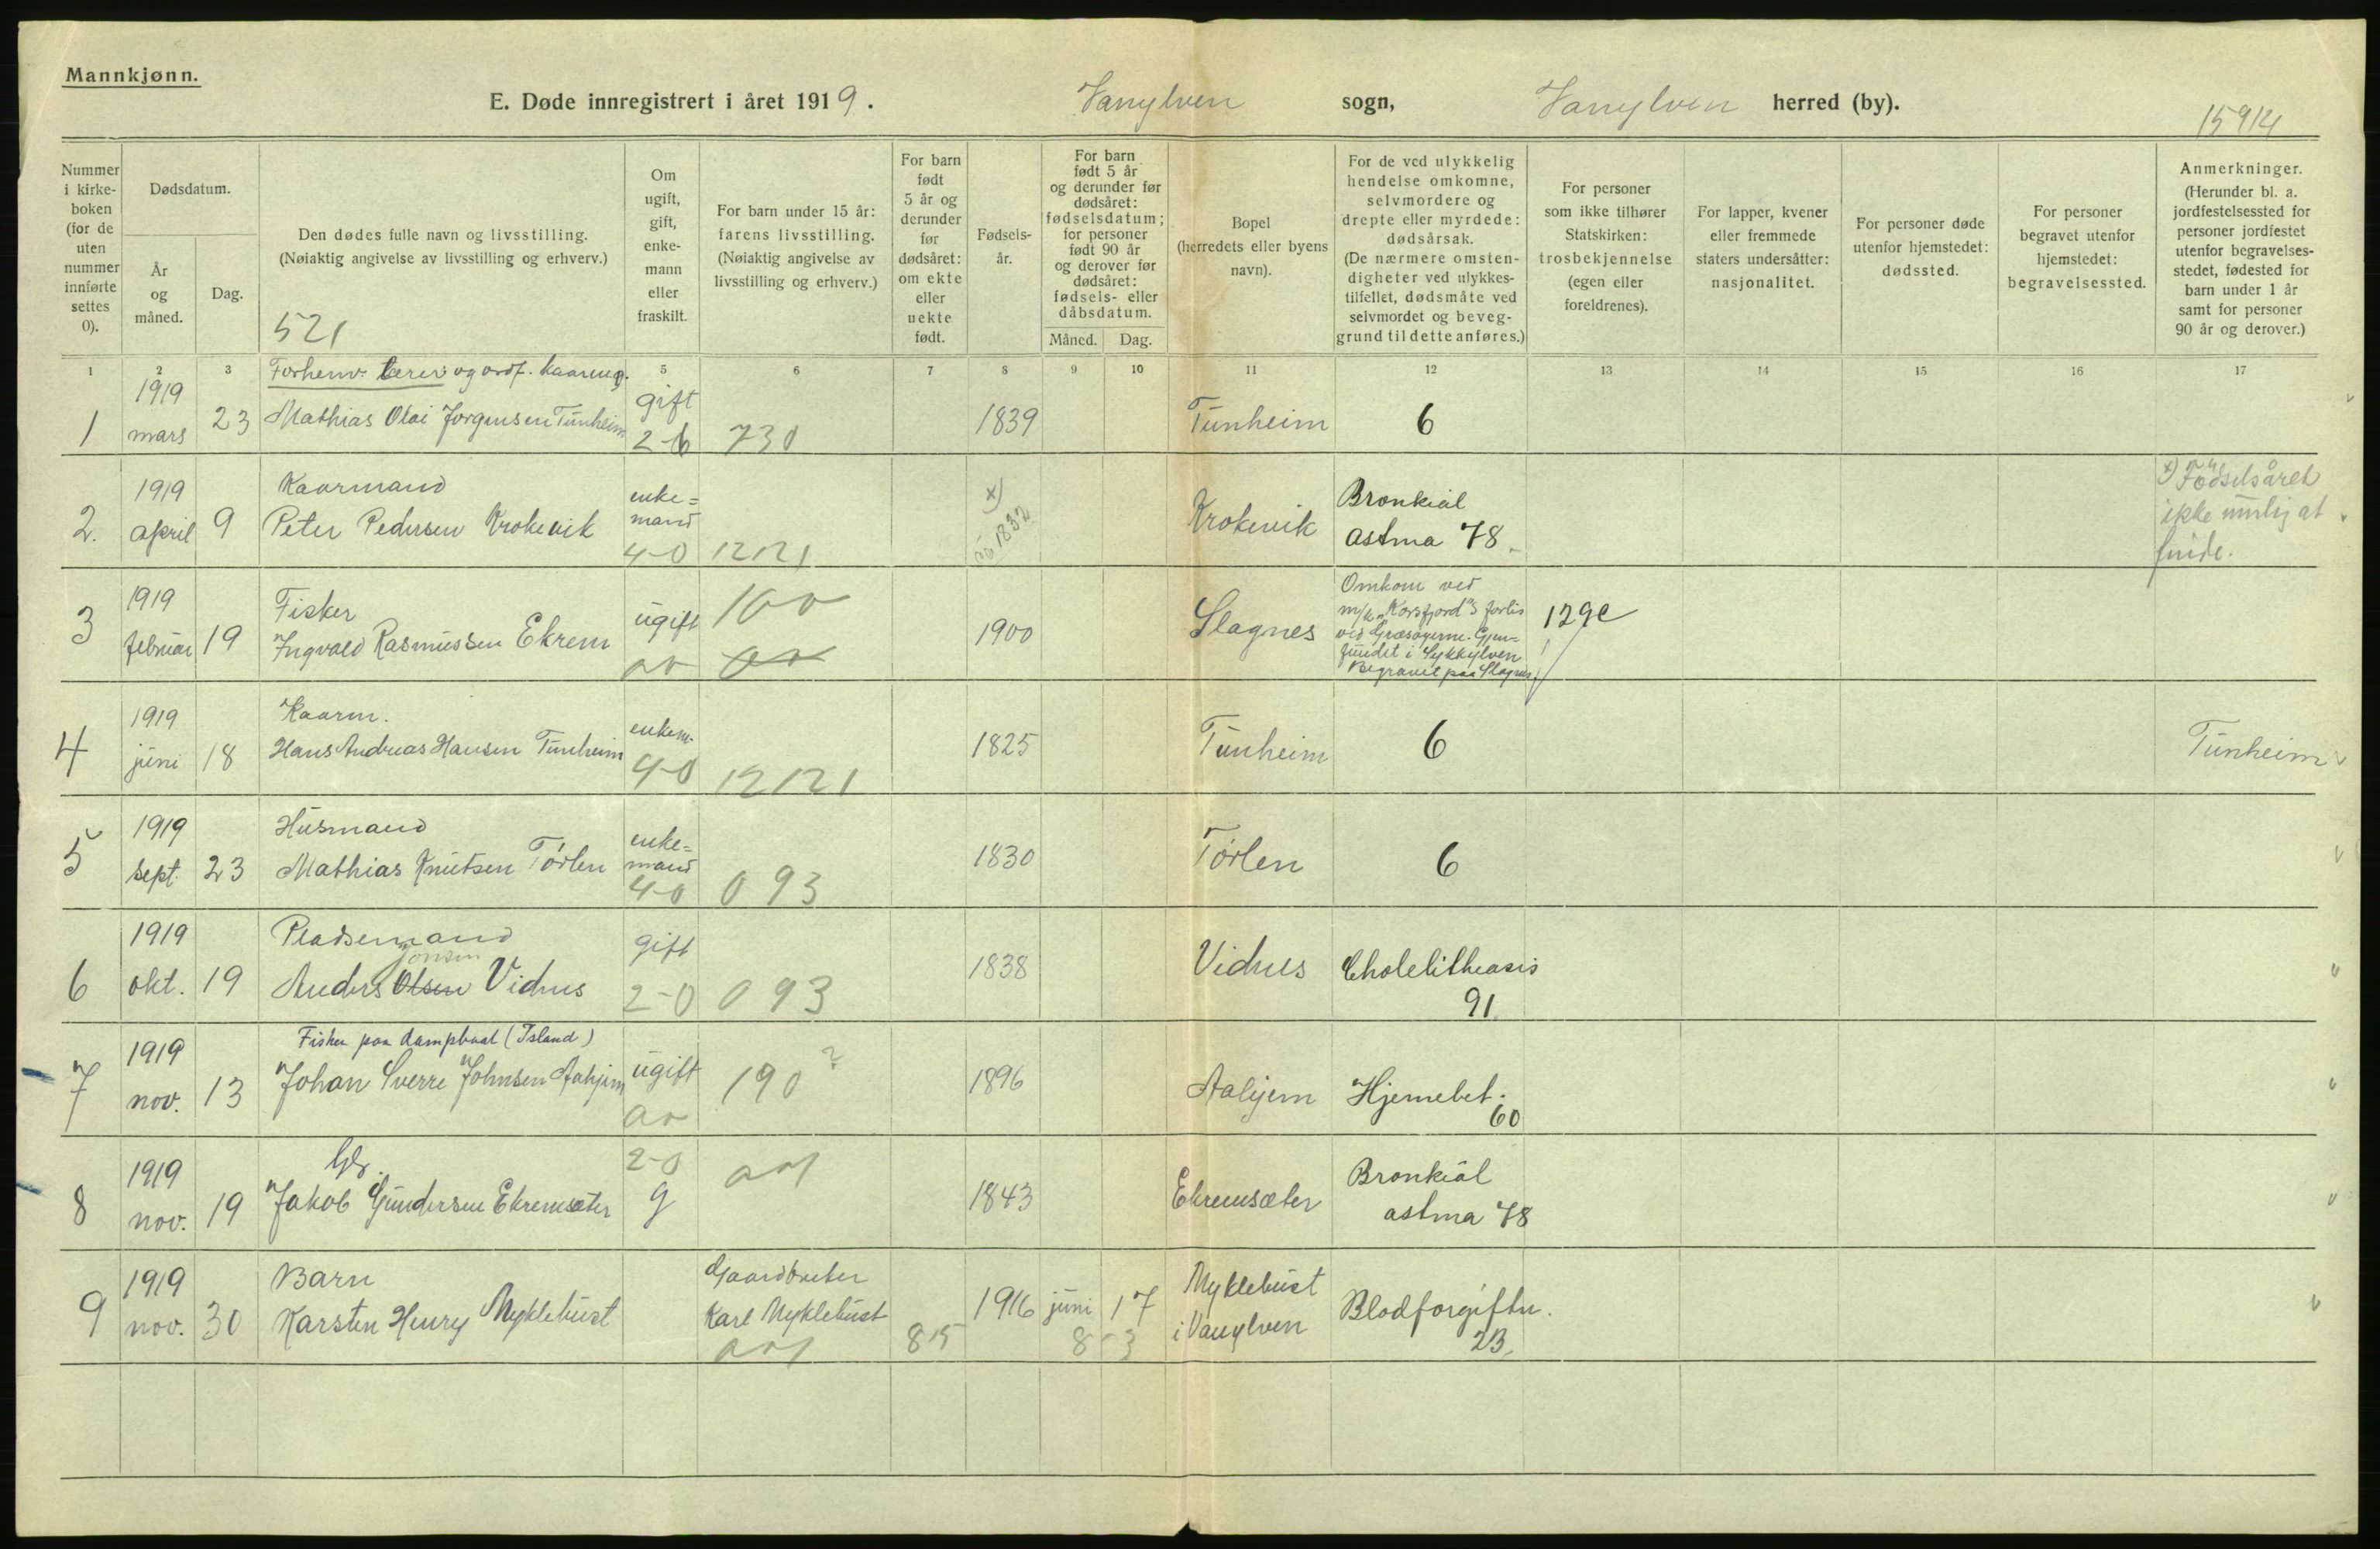 Mannkjønn.
E. Døde innregistrert i året 1919. Vanylven sogn, Vanylven herred (by).
15914
Nummer i kirke-boken (for de uten nummer innførte settes 0).
Dødsdatum.
År og måned.
Dag.
Den dødes fulle navn og livsstilling.
(Nøiaktig angivelse av livsstilling og erhverv.)
521
Om ugift, gift, enke-mann eller fraskilt.
For barn under 15 år: farens livsstilling.
(Nøiaktig angivelse av livsstilling og erhverv.)
For barn født 5 år og derunder før dødsåret: om ekte eller uekte født.
Fødsels-år.
For barn født 5 år og derunder før dødsåret: fødselsdatum; for personer født 90 år og derover før dødsåret: fødsels- eller dåbsdatum.
Måned. Dag.
Bopel (herredets eller byens navn).
For de ved ulykkelig hendelse omkomne, selvmordere og drepte eller myrdede: dødsårsak.
(De nærmere omsten-digheter ved ulykkes-tilfellet, dødsmåte ved selvmordet og beveg-grund til dette anføres.)
For personer som ikke tilhører Statskirken: trosbekjennelse (egen eller foreldrenes).
For lapper, kvener eller fremmede staters undersåtter: nasjonalitet.
For personer døde utenfor hjemstedet: dødssted.
For personer begravet utenfor hjemstedet: begravelsessted.
Anmerkninger.
(Herunder bl. a. jordfestelsessted for personer jordfestet utenfor begravelses-stedet, fødested for barn under 1 år samt for personer 90 år og derover.)
1 2 3 5 6 7 8 9 10 11 12 13 14 15 16 17
Forhenv. lærer og ordf.
1 1919 mars 23 Mathias Olai Jørgensen Tunheim gift 2-6 730 1839 Tunheim 6
Kaarmand
2. 1919 april 9 Peter Pedersen Krokevik enke=mand 4-0 12121 x) 1832 Krokevik Bronkial astma 78
x) Fødselsåret ikke mulig at finde.
Fisker
3 1919 februar 19 Ingvald Rasmussen Ekrem ugift 1900 Slagnes
Omkom ved
m/k „Korsfjord"s forlis
ved Græsøyerne. Gjen=
fundet i Sykkylven
Begravet paa Slagnes.
129e
Kaarm.
4 1919 juni 18 Hans Andreas Hansen Tunheim enkem. 4-0 12121 1825 Tunheim 6 Tunheim
Husmand
5 1919 sept. 23 Mathias Knutsen Tørlen enke=mand 4-0 093 1830 Tørlen 6
Pladsemand
Jonsen
6 1919 okt. 19 Anders Olsen Vidnes gift 2-0 093 1838 Vidnes Cholelitheasis 91
Fisker paa dampbaat (Island)
7 1919 nov. 13 Johan Sverre Johnsen Aahjem ugift 190 ? 1896 Aahjem Hjernebet. 60
8 1919 nov. 19 Jakob Gundersen Ekremsæter 2-0 g 1843 Ekremsæter Bronkial astma 78
Barn
9 1919 nov. 30 Karsten Henry Myklebust Gaardbruker Karl Myklebust 815 1916 juni 17 8-3 Myklebust i Vanylven Blodforgiftn. 23